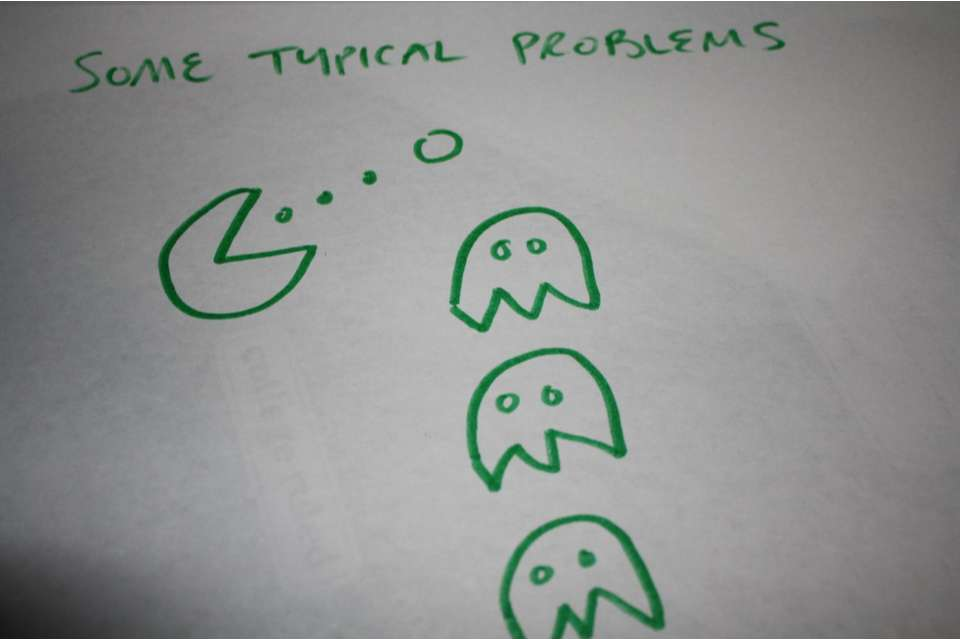 SOME TYPICAL PROBLEMS